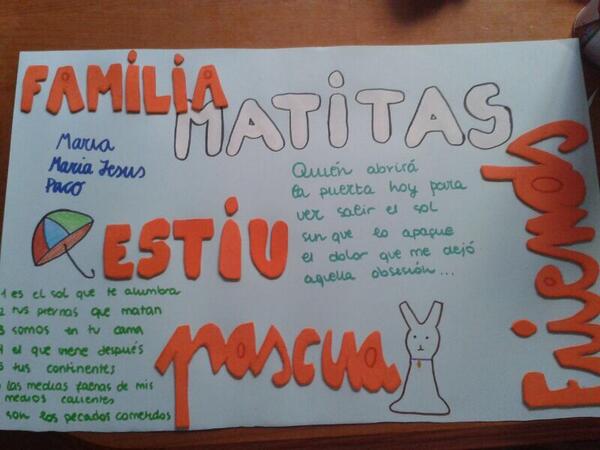 FAMILIA
MATITAS
Maria
Maria Jesus
Paco
Quién abrirá
la puerta hoy para
ver salir el sol
sin que lo apague
el dolor que me dejó
aquella obsesión...
ESTIU
1 es el sol que te alumbra
2 tus piernas que matan
3 somos en tu cama
4 el que viene después
5 tus continentes
6 las medias faenas de mis
medios calientes
son los pecados cometidos
pascua
Friends